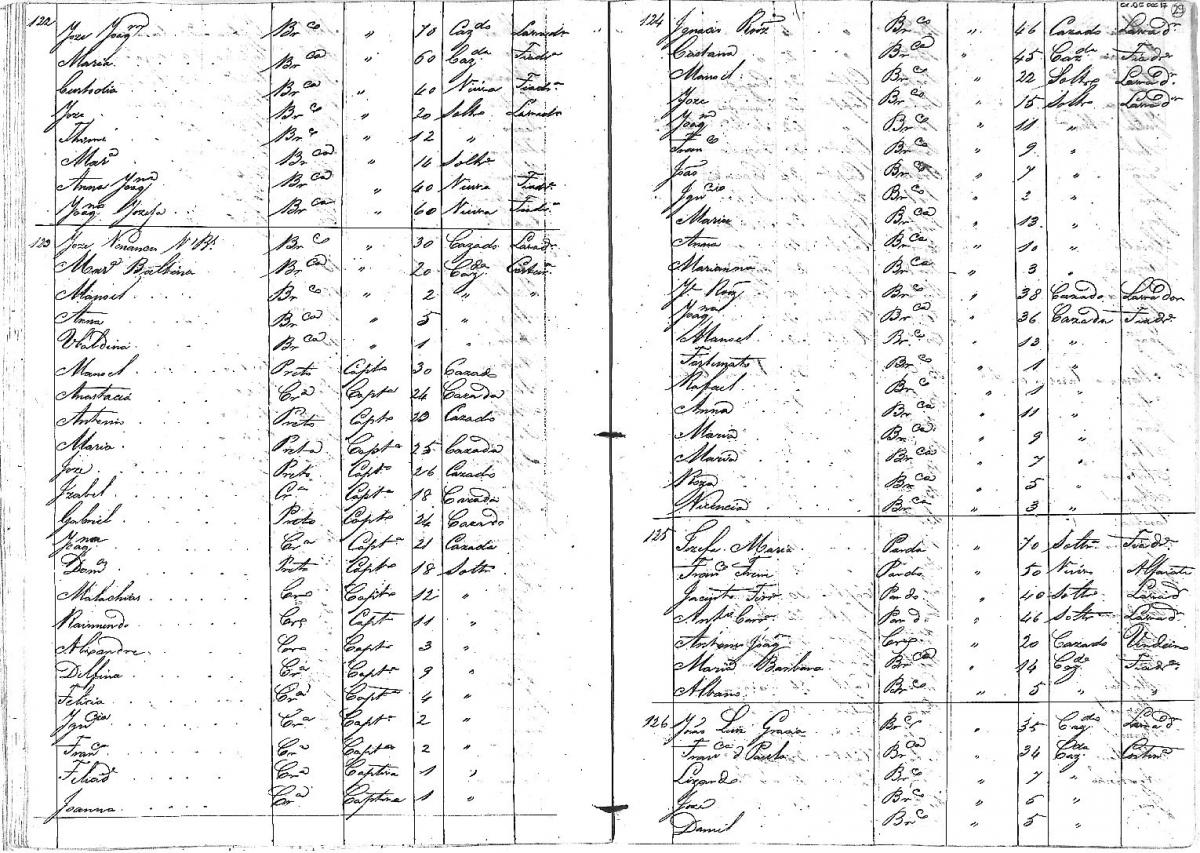 122 Joze Joaqm Brco " 70 Cazdo Lavrador
Maria Brca " 60 Cazda Fiadra
Custodia Brca " 40 Viuva Fiadra
Joze Brco " 20 Soltro Lavrador
Brco " 12 "
Mara Brca " 14 Soltra
Anna Joaqna Brca " 40 Viuva Fiadra
Joaqna Jozefa Brca " 60 Viuva Fiadra
123 Joze Venancio Brco " 30 Cazado Lavrador
Mara Balbina Brca " 20 Cazda Costura
Manoel Brco " 2 " "
Anna Brca " 5 "
Ubaldina Brca " 1 "
Manoel Preto Captvo 30 Cazado
Anastacia Cra Captva 24 Cazada
Antonio Preto Captvo 23 Cazado
Maria Preta Captva 25 Cazada
Joze Preto Captvo 26 Cazado
Izabel Cra Captva 18 Cazada
Gabriel Preto Captvo 24 Cazado
Joaqna Cra Captva 21 Cazada
Domos Preto Captvo 18 Soltro
Malachias Cro Captvo 12 "
Raimundo Cro Captvo 11 "
Alixandre Cro Captvo 3 "
Delfina Cra Captva 9 "
Felicia Cra Captva 4 "
Igncia Cra Captva 2 "
Franca Cra Captva 2 "
Cra Captiva 1 "
Joanna Cra Captiva 1 "
29
124 Ignacio Roiz Brco " 46 Cazado Lavrador
Caetana Brca " 45 Cazda Fiadra
Manoel Brco " 22 Soltro Lavrador
Joze Brco " 15 Soltro Lavrador
Joaqm Brco " 11 "
Franco Brco " 9 "
João Brco " 7 "
Igncio Brco " 2 "
Maria Brca " 13 "
Anna Brca " 10 "
Marianna Brca " 3 "
Je Roiz Brco " 38 Cazado Lavrador
Joaqna Brca " 36 Cazada Fiadra
Manoel Brco " 12 "
Fortunato Brco " 1 "
Rafael Brco " 1 "
Anna Brca " 11 "
Maria Brca " 9 "
Maria Brca " 7 "
Roza Brca " 5 "
Vicencia Brca " 3 "
125 Jozefa Maria Parda " 70 Soltra Fiadra
Franco Pardo " 50 Viuvo Alfaiate
Jacinto Pardo " 40 Soltro Lavrador
Pardo " 46 Soltro Lavrador
Antonio João " 20 Cazado
Maria Barbara Brca " 14 Cazda Fiadra
Albano Brco " 5 " "
126 João Luis Gracia Brco " 35 Cazdo Lavrador
Franca d Paula Brca " 34 Cazda Costura
Lizardo Brco " 7 "
Joze Brco " 6 "
Daniel Brco " 5 "